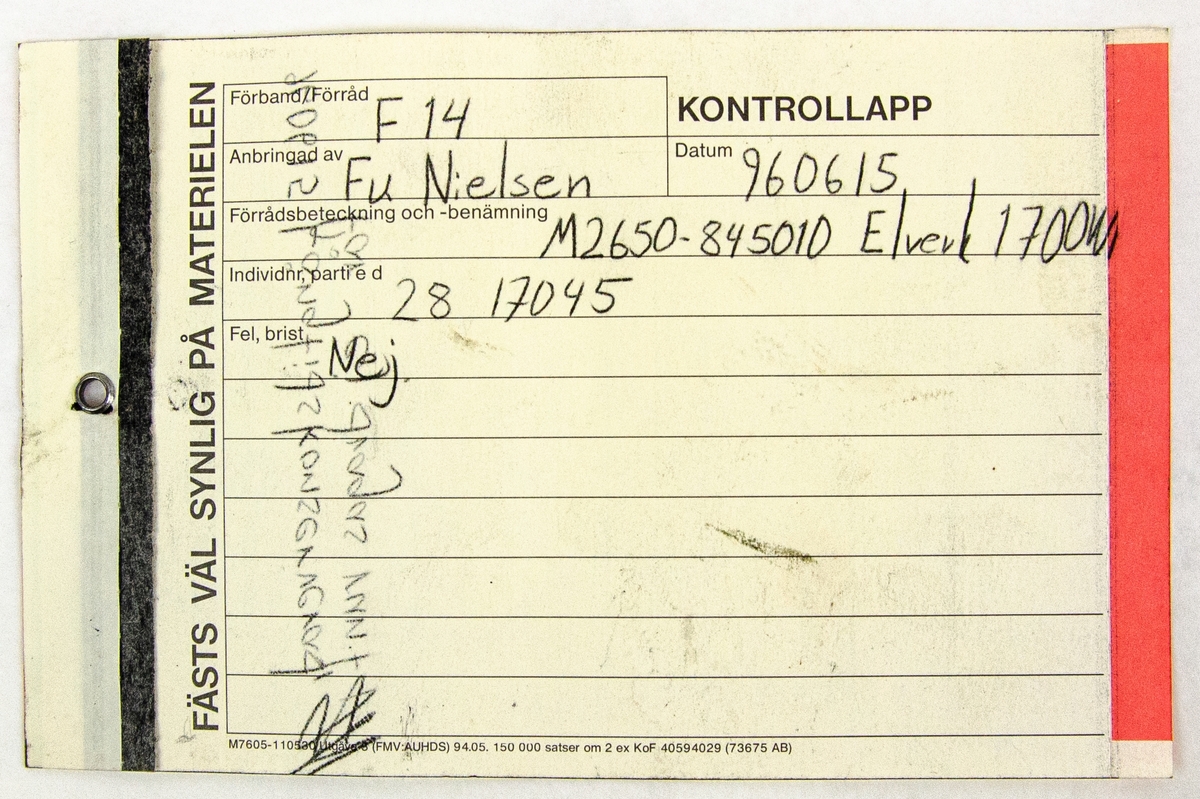 FÄSTS VÄL SYNLIG PÅ MATERIELEN
Förband/Förråd F 14
KONTROLLAPP
Anbringad av Fu Nielsen
Datum 960615
Förrådsbeteckning och -benämning M2650-845010 Elverk 1700W
Individnr, parti e d 28 17045
Fel, brist Nej
M7605-110530 Utgåva 3 (FMV:AUHDS) 94.05. 150 000 satser om 2 ex KoF 40594029 (73675 AB)